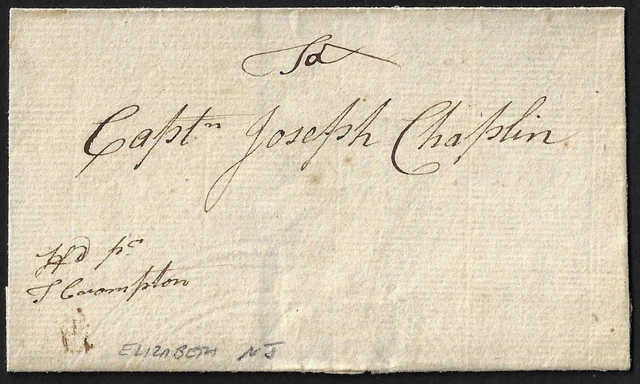 To
Captn Joseph Chaplin
Hd pr
T Crompton
ELIZABETH NJ